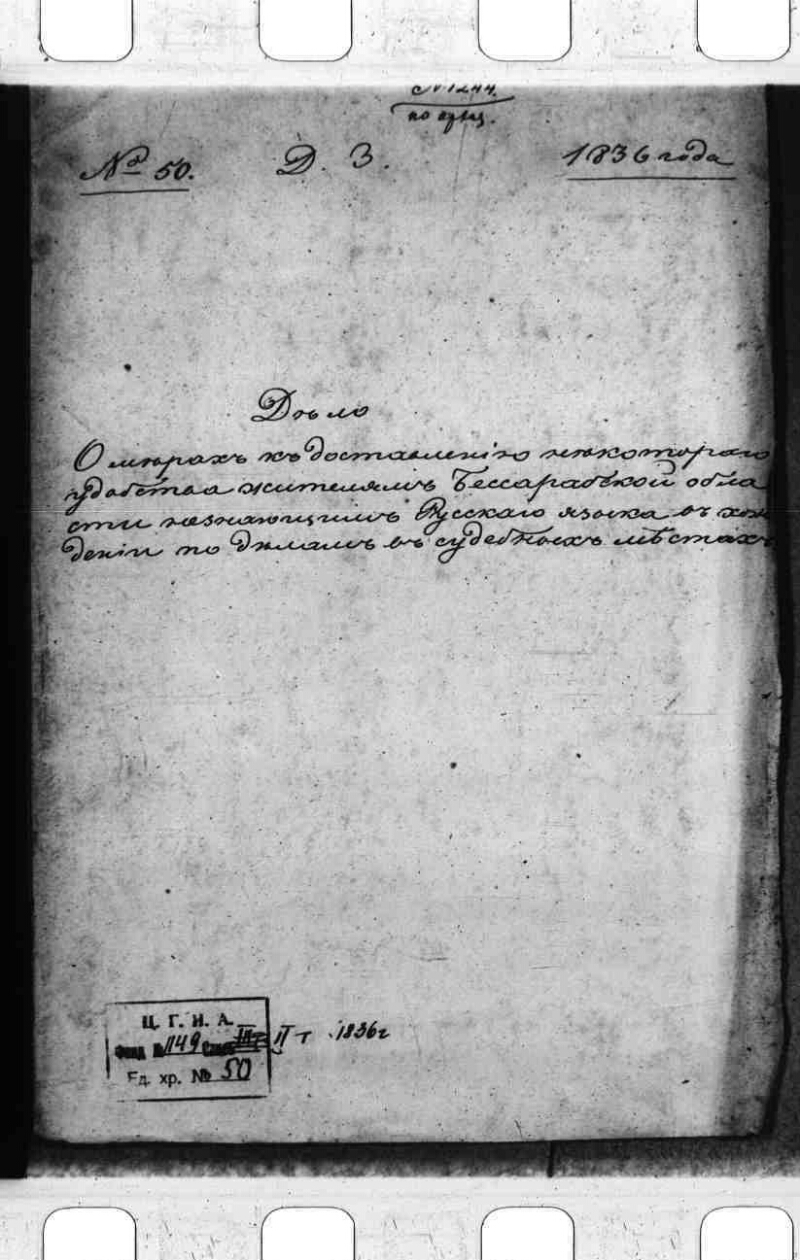 № 1244.
№ 50. Д. 3. 1836 года
Дѣло
О мѣрахъ къ доставленію нѣкотораго
удобства жителямъ Бессарабской обла
сти незнающимъ Русскаго языка въ хож
деніи по дѣламъ въ судебныхъ мѣстахъ
Ц. Г. И. А.
Фонд № 1149 II т 1836 г
Ед. хр. № 50